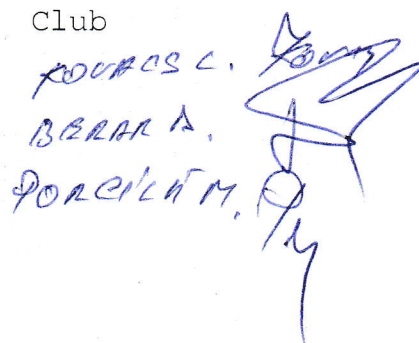 Club
KOVACS C.
BERAR A.
PORCILĂ M.